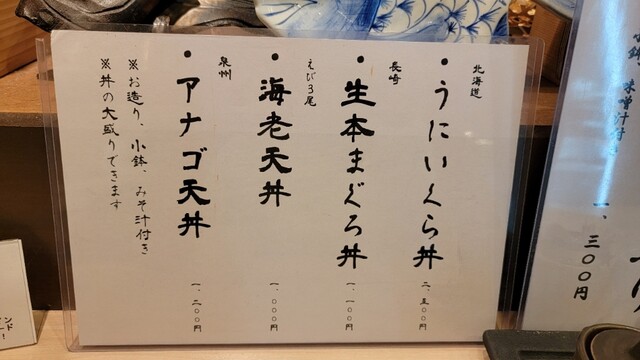 北海道
・うにいくら丼 二、五〇〇円
長崎
・生本まぐろ丼 一、一〇〇円
えび3尾
・海老天丼 一、〇〇〇円
泉州
・アナゴ天丼 一、二〇〇円
※お造り、小鉢、みそ汁付き
※丼の大盛りできます
味噌汁付き
一、三〇〇円